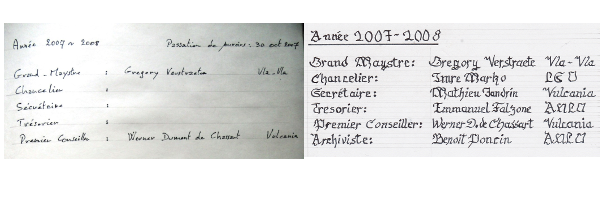 Année 2007 ~ 2008 Passation de pouvoirs : 30 oct 2007
Grand-Maystre : Gregory Verstraete Vla-Vla
Chancelier :
Secrétaire :
Trésorier :
Premier Conseiller : Werner Dumont de Chassart Vulcania
Année 2007-2008
Grand Maystre: Gregory Verstraete Vla-Vla
Chancelier: Imre Marko
Secrétaire: Mathieu Jandrin Vulcania
Tresorier: Emmanuel Falzone
Premier Conseiller: Werner D. de Chassart Vulcania
Archiviste: Benoit Poncin